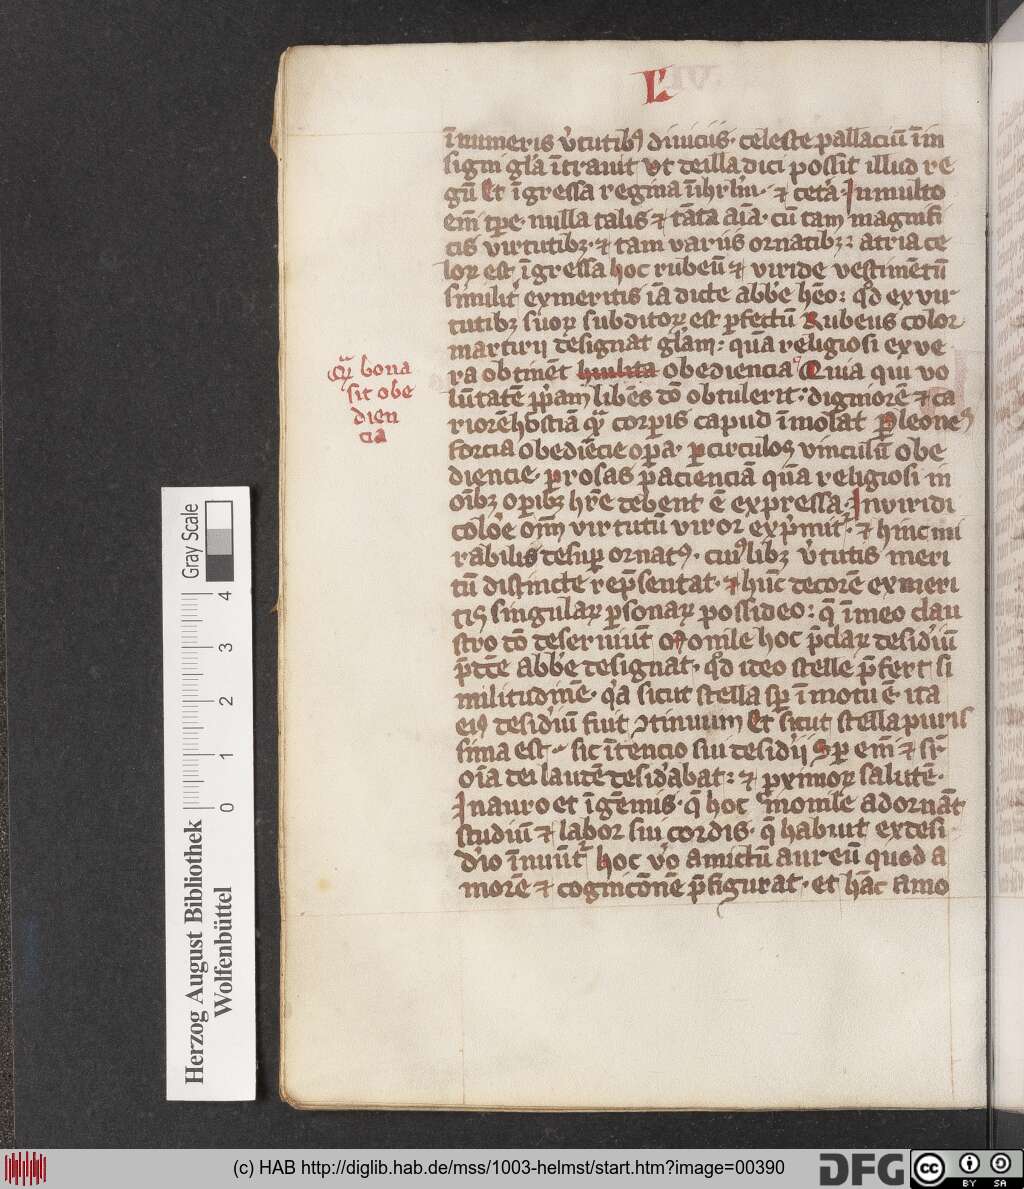 L
īnumeris v̓tutibꝰ diuiciis· celeste pallaciū ī in
signi gl̓a ītrauit vt de illa dici possit illud re
gū Et īgressa regina ī ihrl̓m· ⁊ cetᷓa· In multo
em̄ tp̄e· nulla talis ⁊ tāta aīa· cū tam magnifi
cis virtutibꝫ· ⁊ tam variis ornatibꝫ: atria ce
loꝝ est īgressa hoc rubeū ⁊ viride vestimētū
similit̓ ex meritis iā dicte abbē hēo: qd̓ ex vir
tutibꝫ suoꝝ subditoꝝ est ꝑfectū Rubeus color
martirij designat gl̓am: quā religiosi ex ve
ra obtinēt humilita obediencia Quia qui vo
lūtatē ꝓp̄am libēs d̄o obtulerit: digniorē ⁊ ca
riorē hostiā qᷓ corꝑis capud īmolat Per leoneꝰ
forcia obediēcie oꝑa· ꝑ circulos vinculū obe
diencie· ꝑ rosas paciencia quā religiosi in
oībꝫ oꝑibꝫ hr̄e debent ē expressa· In viridi
colo̓e om̄ virtutū viror exp̓mit̓· ⁊ hinc mi
rabilis desuꝑ ornatꝰ· cuiꝰlibꝫ v̓tutis meri
tū distincte rep̄sentat· ⁊ hūc decorē ex meri
tis singulaꝝ ꝑsonaꝝ possideo: q̄ ī meo clau
stro d̄o deseruiūt Monile hoc p̄claꝝ desidiū
p̄d̄c̄e abbē designat· qd̓ ideo stelle p̄fert si
militudinē· q̓a sicut stella sꝑ ī motu ē· ita
eiꝰ desidiū fiut ꝯtinuum Et sicut stella puris
sima est· sic ītencio sui desid̓ii Sꝑ em̄ ⁊ sr̄
oīa dei laudē desid̓abat: ⁊ ꝓximoꝝ salutē·
In auro et īgēmis· q̄ hoc monile adornāt
studiū ⁊ labor sui cordis· q̄ habuit ex desi
d̓io īnuūt̓ hoc v̓o amictū aureū quod a
morē ⁊ cognicōnē p̄figurat· et hāc amo
qᷓ bona
sit obe
dien
cia
Gray Scale
0 1 2 3 4
Herzog August Bibliothek
Wolfenbüttel
(c) HAB http://diglib.hab.de/mss/1003-helmst/start.htm?image=00390
DFG
cc BY SA